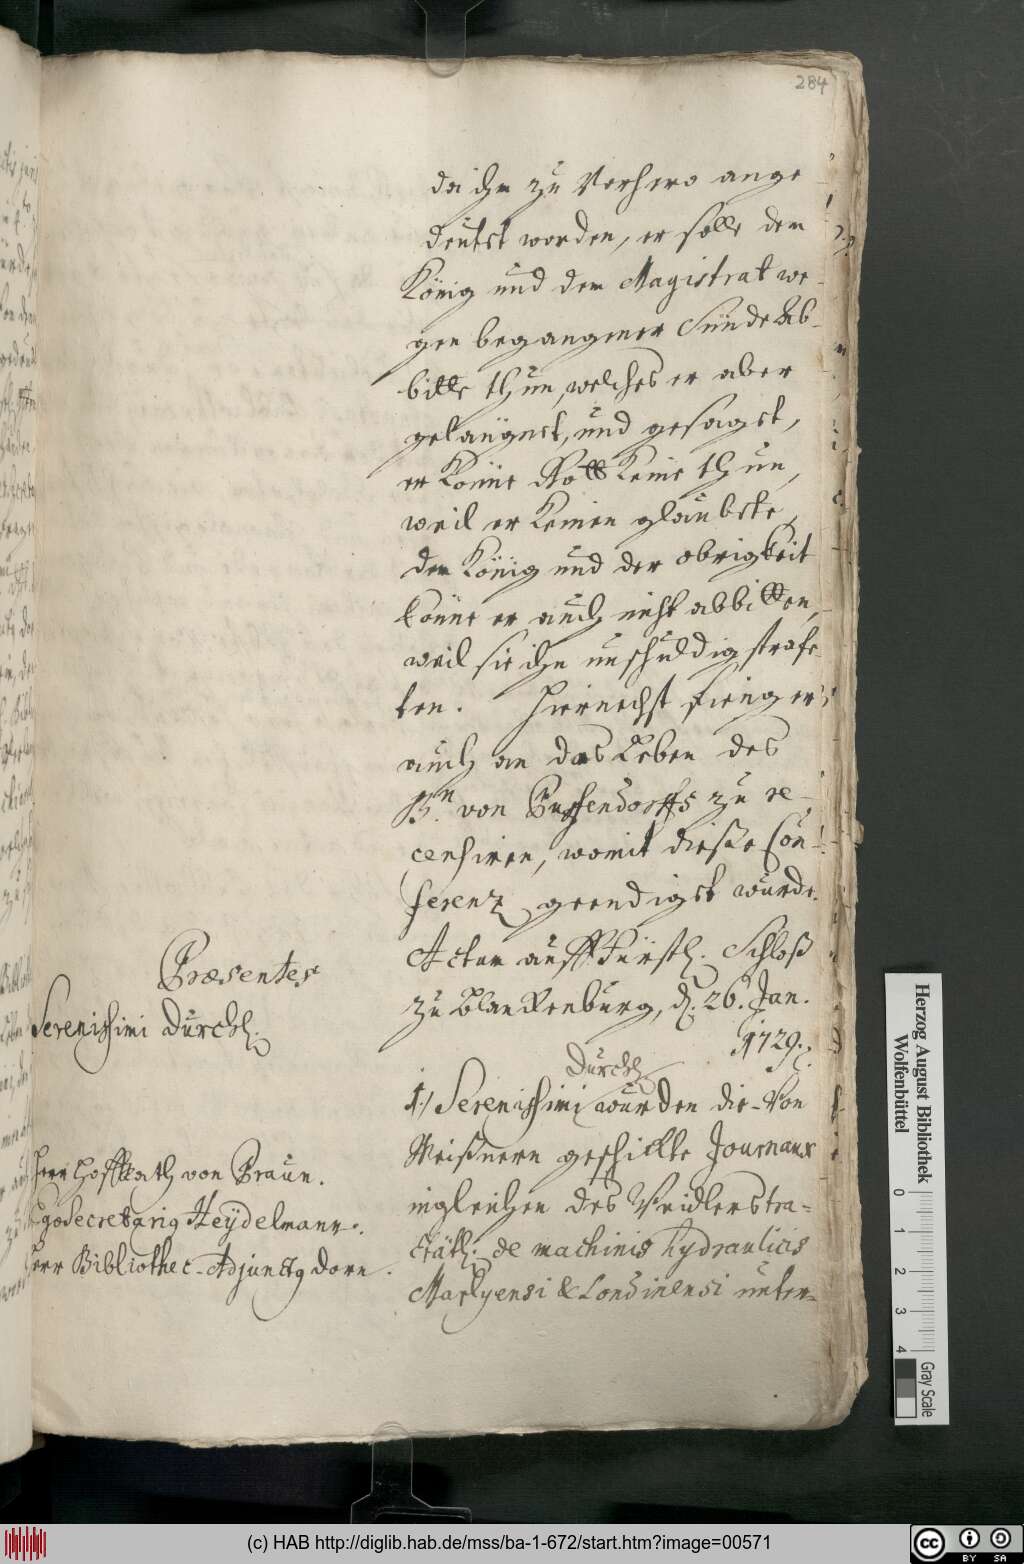 284
da ihm zu Verhero ange
deutet worden, er solle dem
König und dem Magistrat we-
gen begangener Sünde Ab-
bitte thun, welches er aber
geläugnet, und gesaget,
er könne Gott keine thun,
weil er keinen glaubete,
dem König und der obrigkeit
könne er auch nicht abbitten,
weil sie ihn unschuldig strafe-
ten. Hiernechst fieng er
auch an das Leben des
B.n von Puffendorffs zu re-
censiren, womit dieße Con-
ferenz geendiget wurde.
Actum auff Fürstl. Schloß
zu Blanckenburg, d. 26. Jan.
1729.
Præsentes
Serenissimi Durchl.
Herr Hoffrath von Praun.
Ego Secretarius Heydelmann.
Herr Bibliothec-Adjunctus Dorn.
Durchl.
1.) Serenissimi wurden die von
Meißnern geschickte Journaux
ingleichen des Weidlers tra-
ctätl. de machinis hydraulicis
Marlyensi & Londinensi unter-
Herzog August Bibliothek
Wolfenbüttel
0 1 2 3 4
Gray Scale
(c) HAB http://diglib.hab.de/mss/ba-1-672/start.htm?image=00571
cc BY SA